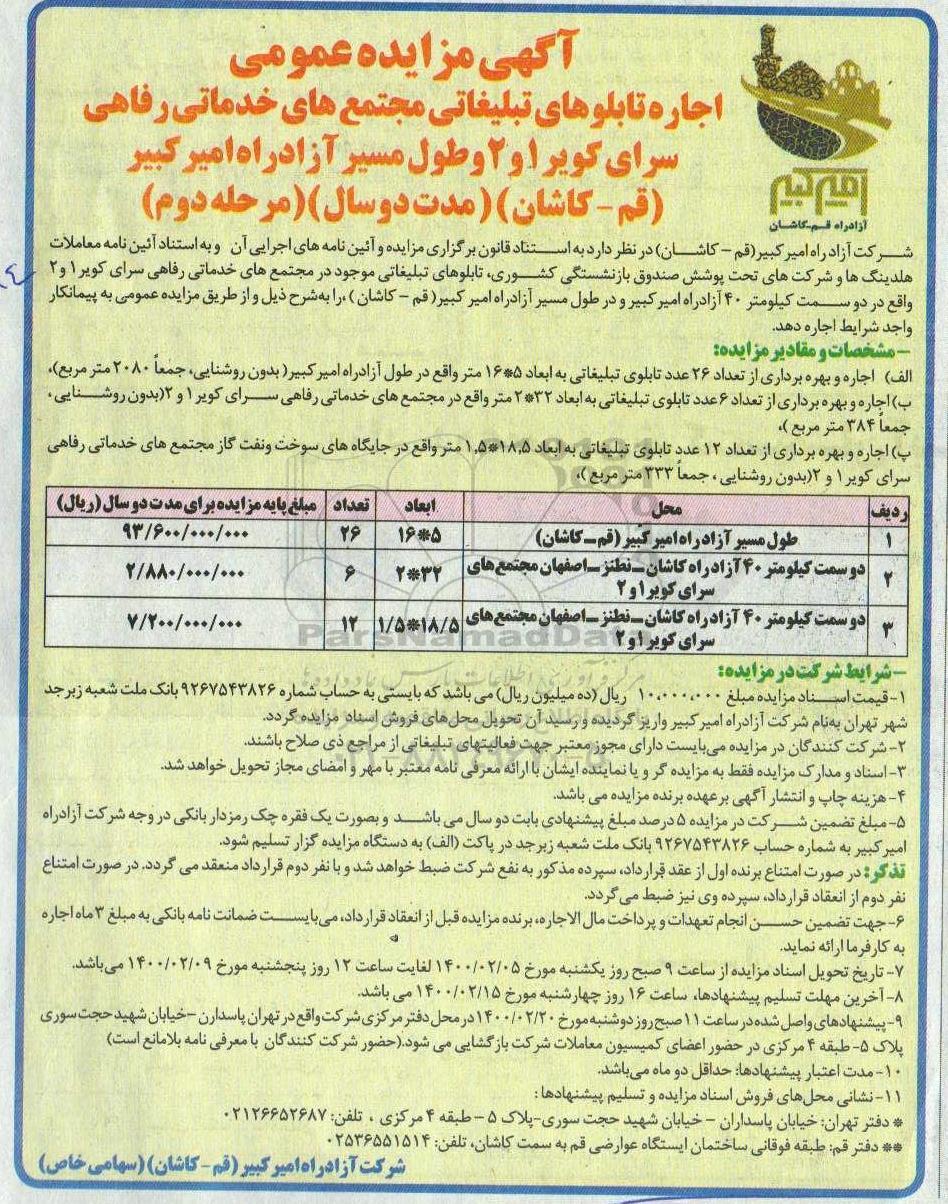 آگهی مزایده عمومی
اجاره تابلوهای تبلیغاتی مجتمع های خدماتی رفاهی
سرای کویر ۱ و ۲ و طول مسیر آزادراه امیرکبیر
(قم - کاشان) (مدت دو سال) (مرحله دوم)
امیرکبیر
آزادراه قم-کاشان
شرکت آزادراه امیرکبیر (قم - کاشان) در نظر دارد به استناد قانون برگزاری مزایده و آئین نامه های اجرایی آن و به استناد آئین نامه معاملات
هلدینگ ها و شرکت های تحت پوشش صندوق بازنشستگی کشوری، تابلوهای تبلیغاتی موجود در مجتمع های خدماتی رفاهی سرای کویر ۱ و ۲
واقع در دو سمت کیلومتر ۴۰ آزادراه امیرکبیر و در طول مسیر آزادراه امیر کبیر( قم - کاشان ) ،را به‌شرح ذیل و از طریق مزایده عمومی به پیمانکار
واجد شرایط اجاره دهد.
-مشخصات و مقادیر مزایده:
الف) اجاره و بهره برداری از تعداد ۲۶ عدد تابلوی تبلیغاتی به ابعاد ۵*۱۶ متر واقع در طول آزادراه امیرکبیر( بدون روشنایی، جمعاً ۲۰۸۰ متر مربع)،
ب) اجاره و بهره برداری از تعداد ۶ عدد تابلوی تبلیغاتی به ابعاد ۳۲*۲ متر واقع در مجتمع های خدماتی رفاهی سرای کویر ۱ و ۲(بدون روشنایی ،
جمعاً ۳۸۴ متر مربع )،
پ) اجاره و بهره برداری از تعداد ۱۲ عدد تابلوی تبلیغاتی به ابعاد ۱۸,۵*۱,۵ متر واقع در جایگاه های سوخت ونفت گاز مجتمع های خدماتی رفاهی
سرای کویر ۱ و ۲(بدون روشنایی ، جمعاً ۳۳۳ متر مربع )،
ردیف محل ابعاد تعداد مبلغ پایه مزایده برای مدت دو سال (ریال)
۱ طول مسیر آزادراه امیرکبیر (قم-کاشان) ۵*۱۶ ۲۶ ۹۳/۶۰۰/۰۰۰/۰۰۰
۲ دو سمت کیلومتر ۴۰ آزادراه کاشان-نطنز-اصفهان مجتمع های ۳۲*۲ ۶ ۲/۸۸۰/۰۰۰/۰۰۰
سرای کویر ۱ و ۲
۳ دو سمت کیلومتر ۴۰ آزادراه کاشان-نطنز-اصفهان مجتمع های ۱۸/۵*۱/۵ ۱۲ ۷/۲۰۰/۰۰۰/۰۰۰
سرای کویر ۱ و ۲
ParsNamadData
-شرایط شرکت در مزایده:
۱- قیمت اسناد مزایده مبلغ ۱۰,۰۰۰,۰۰۰ ریال (ده میلیون ریال) می باشد که بایستی به حساب شماره ۹۲۶۷۵۴۳۸۲۶ بانک ملت شعبه زبرجد
شهر تهران به‌نام شرکت آزادراه امیرکبیر واریز گردیده و رسید آن تحویل محل‌های فروش اسناد مزایده گردد.
۲- شرکت کنندگان در مزایده می‌بایست دارای مجوز معتبر جهت فعالیتهای تبلیغاتی از مراجع ذی صلاح باشند.
۳- اسناد و مدارک مزایده فقط به مزایده گر و یا نماینده ایشان با ارائه معرفی نامه معتبر با مهر و امضای مجاز تحویل خواهد شد.
۴- هزینه چاپ و انتشار آگهی برعهده برنده مزایده می باشد.
۵- مبلغ تضمین شرکت در مزایده ۵ درصد مبلغ پیشنهادی بابت دو سال می باشد و بصورت یک فقره چک رمزدار بانکی در وجه شرکت آزادراه
امیرکبیر به شماره حساب ۹۲۶۷۵۴۳۸۲۶ بانک ملت شعبه زبرجد در پاکت (الف) به دستگاه مزایده گزار تسلیم شود.
تذکر: در صورت امتناع برنده اول از عقد قرارداد، سپرده مذکور به نفع شرکت ضبط خواهد شد و با نفر دوم قرارداد منعقد می گردد. در صورت امتناع
نفر دوم از انعقاد قرارداد، سپرده وی نیز ضبط می‌گردد.
۶- جهت تضمین حسن انجام تعهدات و پرداخت مال الاجاره، برنده مزایده قبل از انعقاد قرارداد، می‌بایست ضمانت نامه بانکی به مبلغ ۳ ماه اجاره
به کارفرما ارائه نماید.
۷- تاریخ تحویل اسناد مزایده از ساعت ۹ صبح روز یکشنبه مورخ ۱۴۰۰/۰۲/۰۵ لغایت ساعت ۱۲ روز پنجشنبه مورخ ۱۴۰۰/۰۲/۰۹ می‌باشد.
۸- آخرین مهلت تسلیم پیشنهادها، ساعت ۱۶ روز چهارشنبه مورخ ۱۴۰۰/۰۲/۱۵ می باشد.
۹- پیشنهادهای واصل شده در ساعت ۱۱ صبح روز دوشنبه مورخ ۱۴۰۰/۰۲/۲۰ در محل دفتر مرکزی شرکت واقع در تهران پاسدارن -خیابان شهید حجت سوری
پلاک ۵- طبقه ۴ مرکزی در حضور اعضای کمیسیون معاملات شرکت بازگشایی می شود.(حضور شرکت کنندگان با معرفی نامه بلامانع است)
۱۰- مدت اعتبار پیشنهادها: حداقل دو ماه می‌باشد.
۱۱- نشانی محل‌های فروش اسناد مزایده و تسلیم پیشنهادها:
* دفتر تهران: خیابان پاسداران - خیابان شهید حجت سوری-پلاک ۵ - طبقه ۴ مرکزی ، تلفن: ۰۲۱۲۶۶۵۲۶۸۷
** دفتر قم: طبقه فوقانی ساختمان ایستگاه عوارضی قم به سمت کاشان، تلفن: ۰۲۵۳۶۵۵۱۵۱۴
شرکت آزادراه امیرکبیر (قم-کاشان) (سهامی خاص)